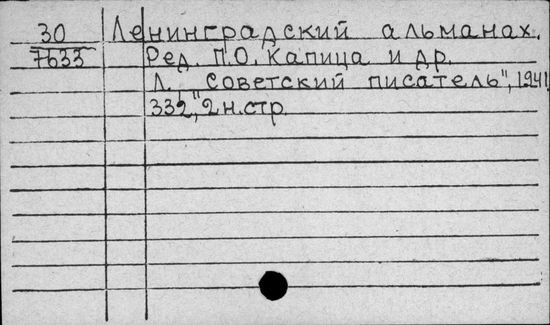 30 Ленинградский альманах.
7633 Ред. П.О. Капица и др.
Л. "Советский писатель", 1941
332, 2 н.стр.